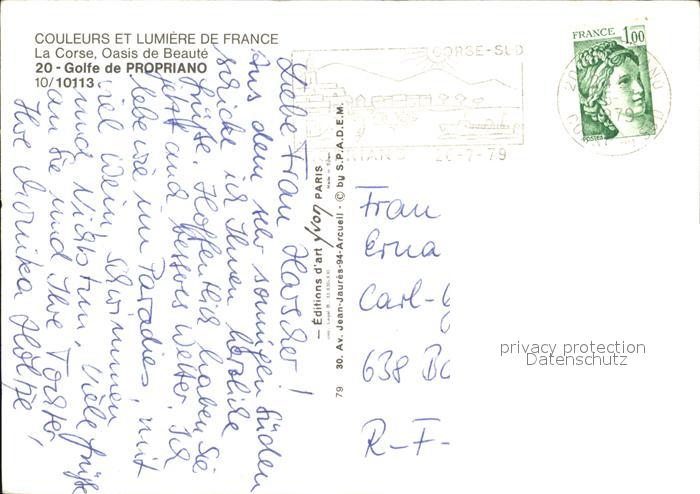 COULEURS ET LUMIÈRE DE FRANCE
La Corse, Oasis de Beauté
20 - Golfe de PROPRIANO
10/10113
CORSE-SUD
PROPRIANO 26-7-79
FRANCE
1,00
POSTES
Liebe Frau
Aus dem sehr sonnigen Süden
schicke ich Ihnen herzliche
Grüße. Hoffentlich haben Sie
jetzt auch besseres Wetter. Ich
lebe wie im Paradies, mit
viel Wein, Schwimmen
und Nichtstun. Viele Grüße
an Sie und Ihre Tochter,
Ihre Monika
— Éditions d'art yvon PARIS
30. Av. Jean-Jaurès-94-Arcueil - © by S.P.A.D.E.M.
79
Frau
Erna
Carl-
638
R-F-
privacy protection
Datenschutz